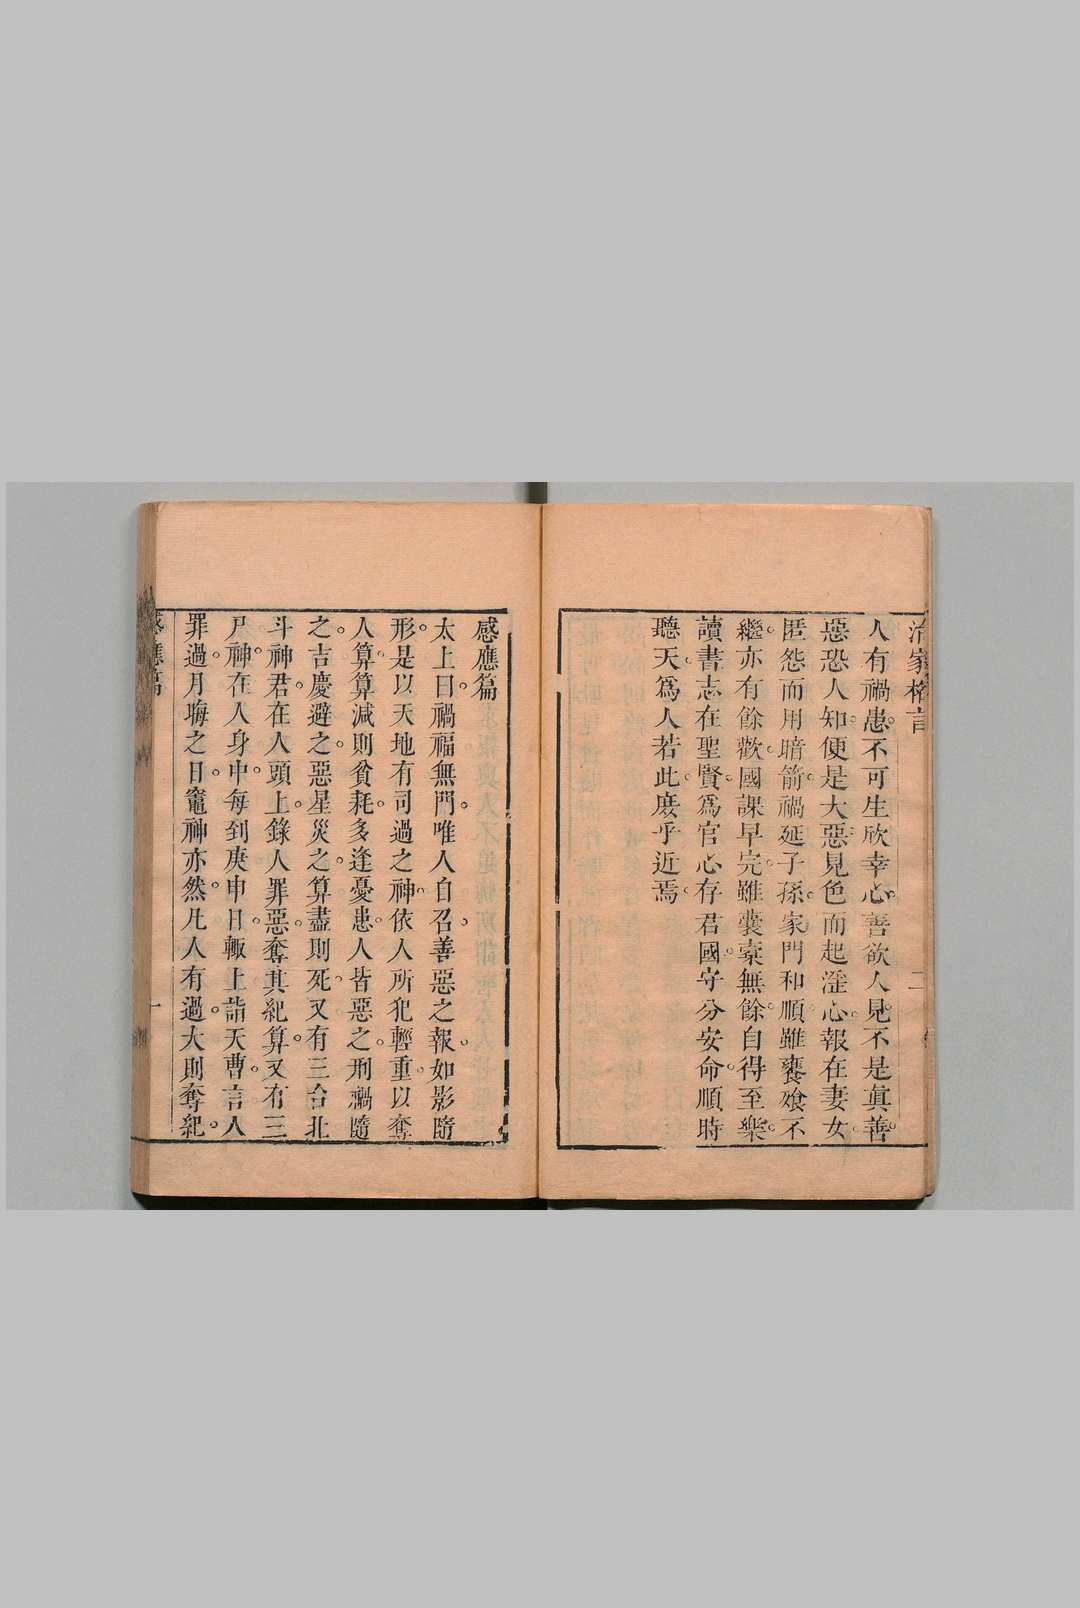 治家格言
二
人有禍患。不可生欣幸心。善欲人見。不是眞善。
惡恐人知。便是大惡。見色而起淫心。報在妻女。
匿怨而用暗箭。禍延子孫。家門和順。雖饔飧不
繼。亦有餘歡。國課早完。雖囊橐無餘。自得至樂。
讀書志在聖賢。爲官心存君國。守分安命。順時
聽天。爲人若此。庶乎近焉。
感應篇
太上曰。禍福無門。唯人自召。善惡之報。如影隨
形。是以天地有司過之神。依人所犯輕重。以奪
人算。算減則貧耗。多逢憂患。人皆惡之。刑禍隨
之。吉慶避之。惡星災之。算盡則死。又有三台北
斗神君。在人頭上。錄人罪惡。奪其紀算。又有三
尸神。在人身中。每到庚申日。輒上詣天曹。言人
罪過。月晦之日。竈神亦然。凡人有過。大則奪紀。
感應篇
一